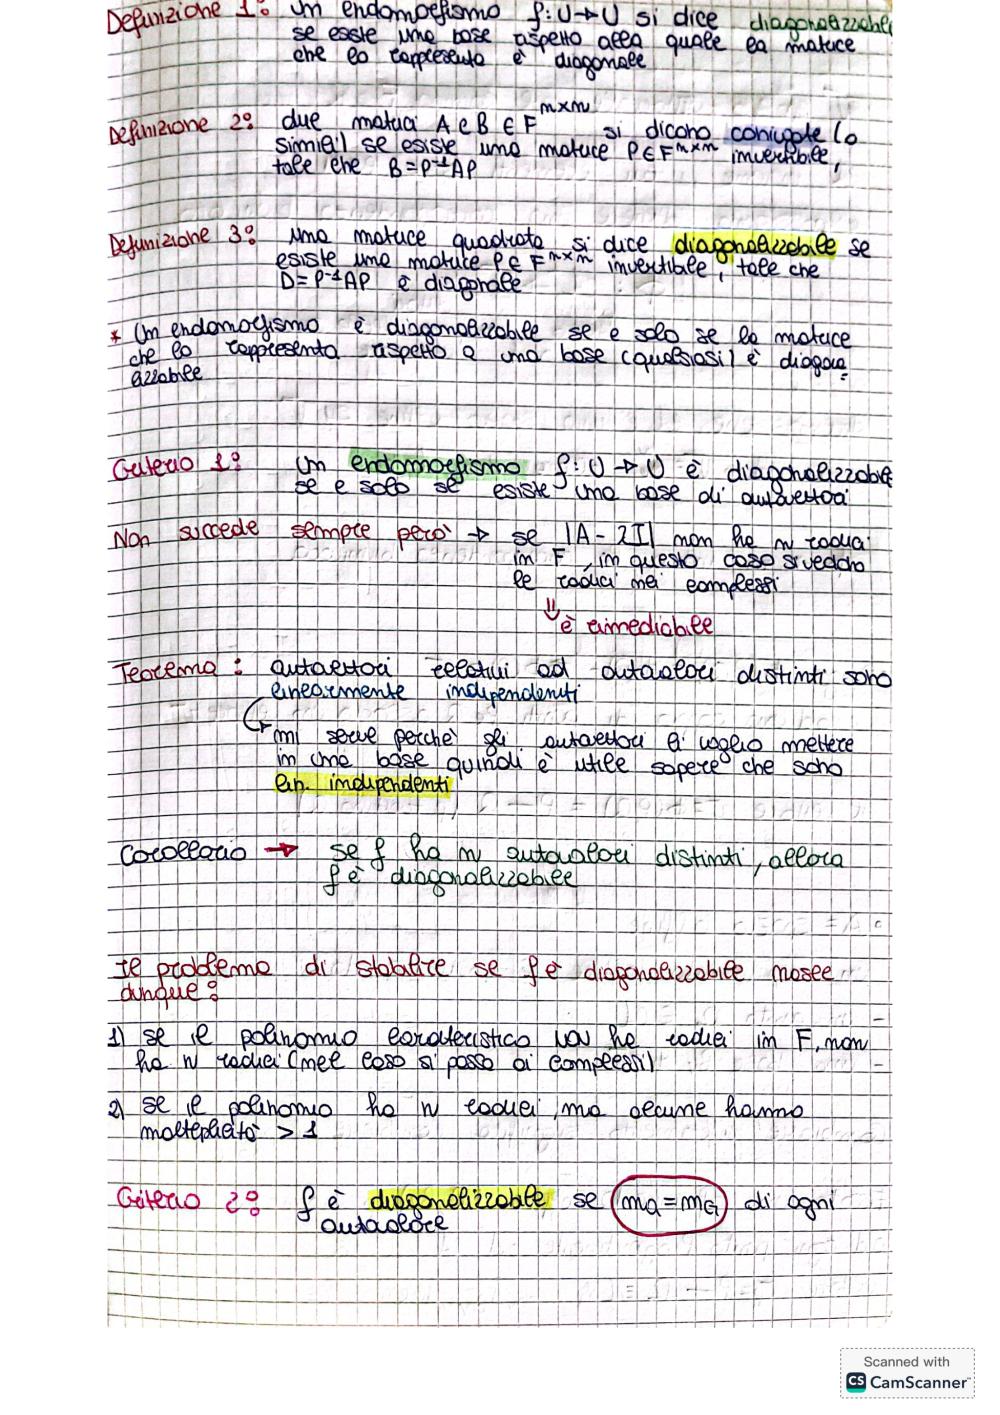 Definizione 1: un endomorfismo f: U → U si dice diagonalizzabile
se esiste una base rispetto alla quale la matrice
che lo rappresenta è diagonale
Definizione 2: due matrici A e B ∈ F^{n×n} si dicono coniugate (o
simili) se esiste una matrice P ∈ F^{n×n} invertibile,
tale che B = P⁻¹AP
Definizione 3: una matrice quadrata si dice diagonalizzabile se
esiste una matrice P ∈ F^{n×n} invertibile, tale che
D = P⁻¹AP è diagonale
* Un endomorfismo è diagonalizzabile se e solo se la matrice
che lo rappresenta rispetto a una base (qualsiasi) è diagona
lizzabile
Criterio 1: Un endomorfismo f: U → U è diagonalizzabile
se e solo se esiste una base di autovettori
Non succede sempre però → se |A - λI| non ha n radici
in F, in questo caso si vedono
le radici nei complessi
⇓ è rimediabile
Teorema: autovettori relativi ad autovalori distinti sono
linearmente indipendenti
mi serve perché gli autovettori li voglio mettere
in una base quindi è utile sapere che sono
lin. indipendenti
Corollario → se f ha n autovalori distinti, allora
f è diagonalizzabile
Il problema di stabilire se f è diagonalizzabile nasce
dunque:
1) se il polinomio caratteristico non ha radici in F, non
ha n radici (nel caso si passa ai complessi)
2) se il polinomio ha n radici, ma alcune hanno
molteplicità > 1
Criterio 2: f è diagonalizzabile se ma = mG di ogni
autovalore
Scanned with
CS CamScanner